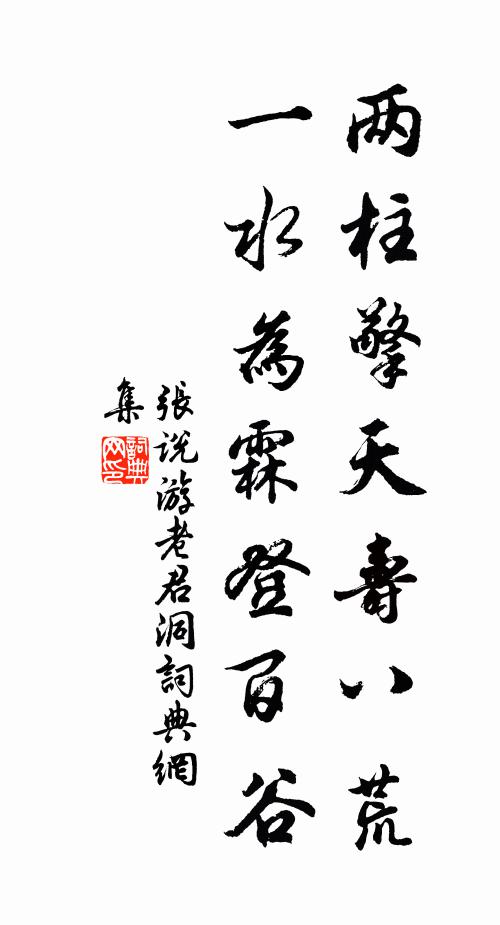 两柱擎天壽八荒
一水為霖登百谷
張说游老君洞詞典網
集
詞典网印